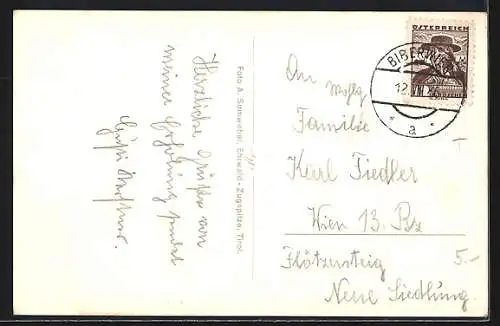 Herzliche Grüße von
meiner Erholung sendet
ÖSTERREICH
BIBERWIER
12. VII. 36
* a *
Foto A. Somweber, Ehrwald - Zugspitze, Tirol.
An wohlg.
Familie
Karl Fiedler
Wien 13. Bz
Flötzersteig
Neue Siedlung
5.-